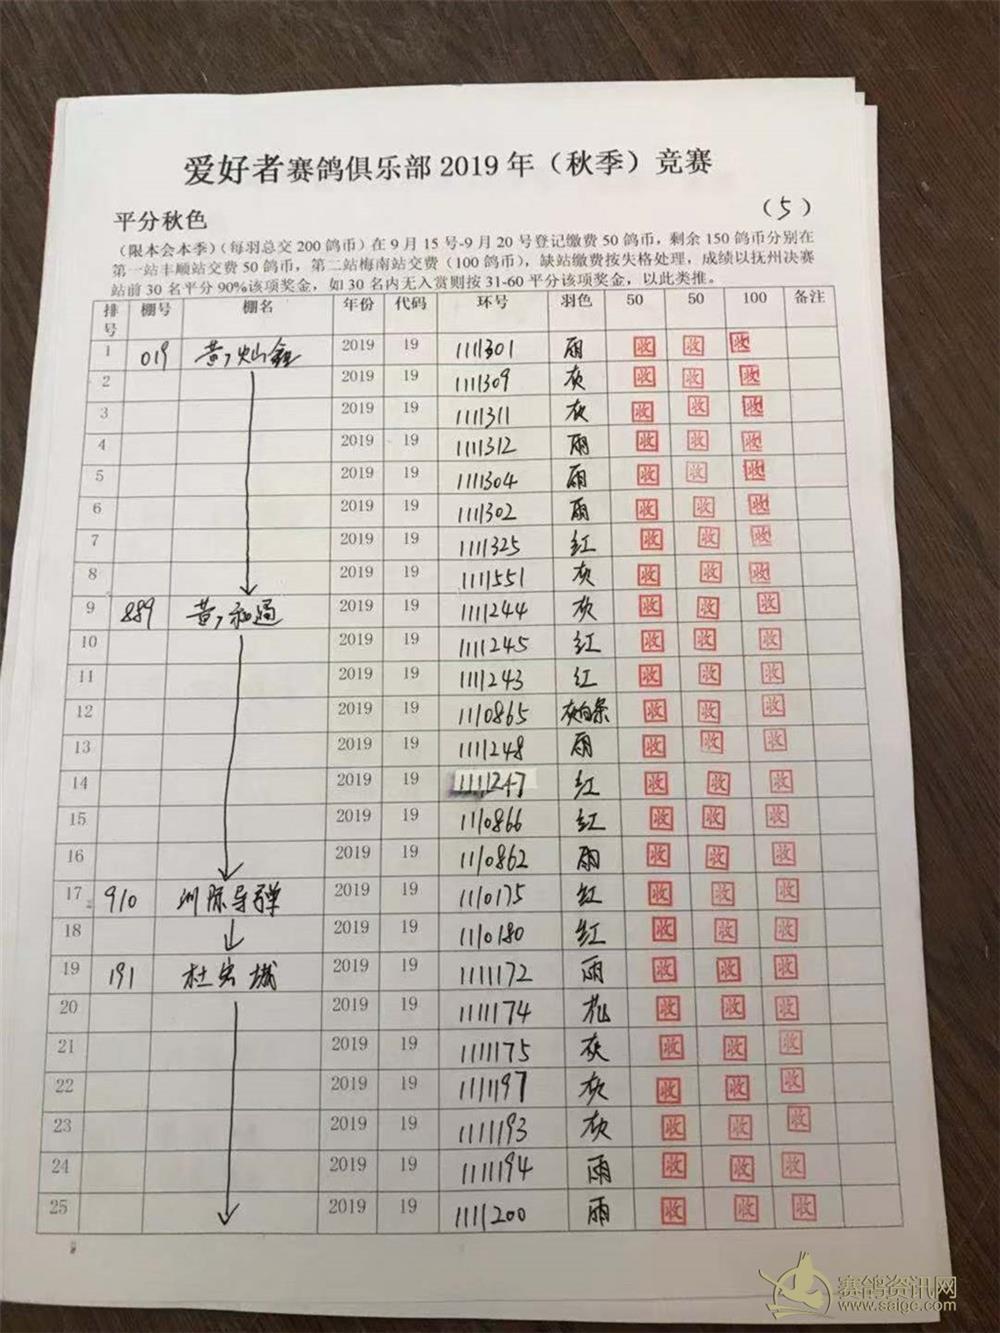 爱好者赛鸽俱乐部 2019 年（秋季）竞赛
平分秋色 （5）
（限本会本季）（每羽总交 200 鸽币）在 9 月 15 号-9 月 20 号登记缴费 50 鸽币，剩余 150 鸽币分别在
第一站丰顺站交费 50 鸽币，第二站梅南站交费（100 鸽币），缺站缴费按失格处理，成绩以抚州决赛
站前 30 名平分 90%该项奖金，如 30 名内无入赏则按 31-60 平分该项奖金，以此类推。
排号 棚号 棚名 年份 代码 环号 羽色 50 50 100 备注
1 019 黄灿鑫 2019 19 1111301 雨 收 收 收
2 2019 19 1111309 灰 收 收 收
3 2019 19 1111311 灰 收 收 收
4 2019 19 1111312 雨 收 收 收
5 2019 19 1111304 雨 收 收 收
6 2019 19 1111302 雨 收 收 收
7 2019 19 1111325 红 收 收 收
8 2019 19 1111551 灰 收 收 收
9 889 黄和通 2019 19 1111244 灰 收 收 收
10 2019 19 1111245 红 收 收 收
11 2019 19 1111243 红 收 收 收
12 2019 19 1110865 灰白条 收 收 收
13 2019 19 1111248 雨 收 收 收
14 2019 19 1111247 红 收 收 收
15 2019 19 1110866 红 收 收 收
16 2019 19 1110862 雨 收 收 收
17 910 洲际导弹 2019 19 1110175 红 收 收 收
18 2019 19 1110180 红 收 收 收
19 191 杜宏城 2019 19 1111172 雨 收 收 收
20 2019 19 1111174 花 收 收 收
21 2019 19 1111175 灰 收 收 收
22 2019 19 1111197 灰 收 收 收
23 2019 19 1111193 灰 收 收 收
24 2019 19 1111194 雨 收 收 收
25 2019 19 1111200 雨 收 收 收
赛鸽资讯网
www.saigc.com